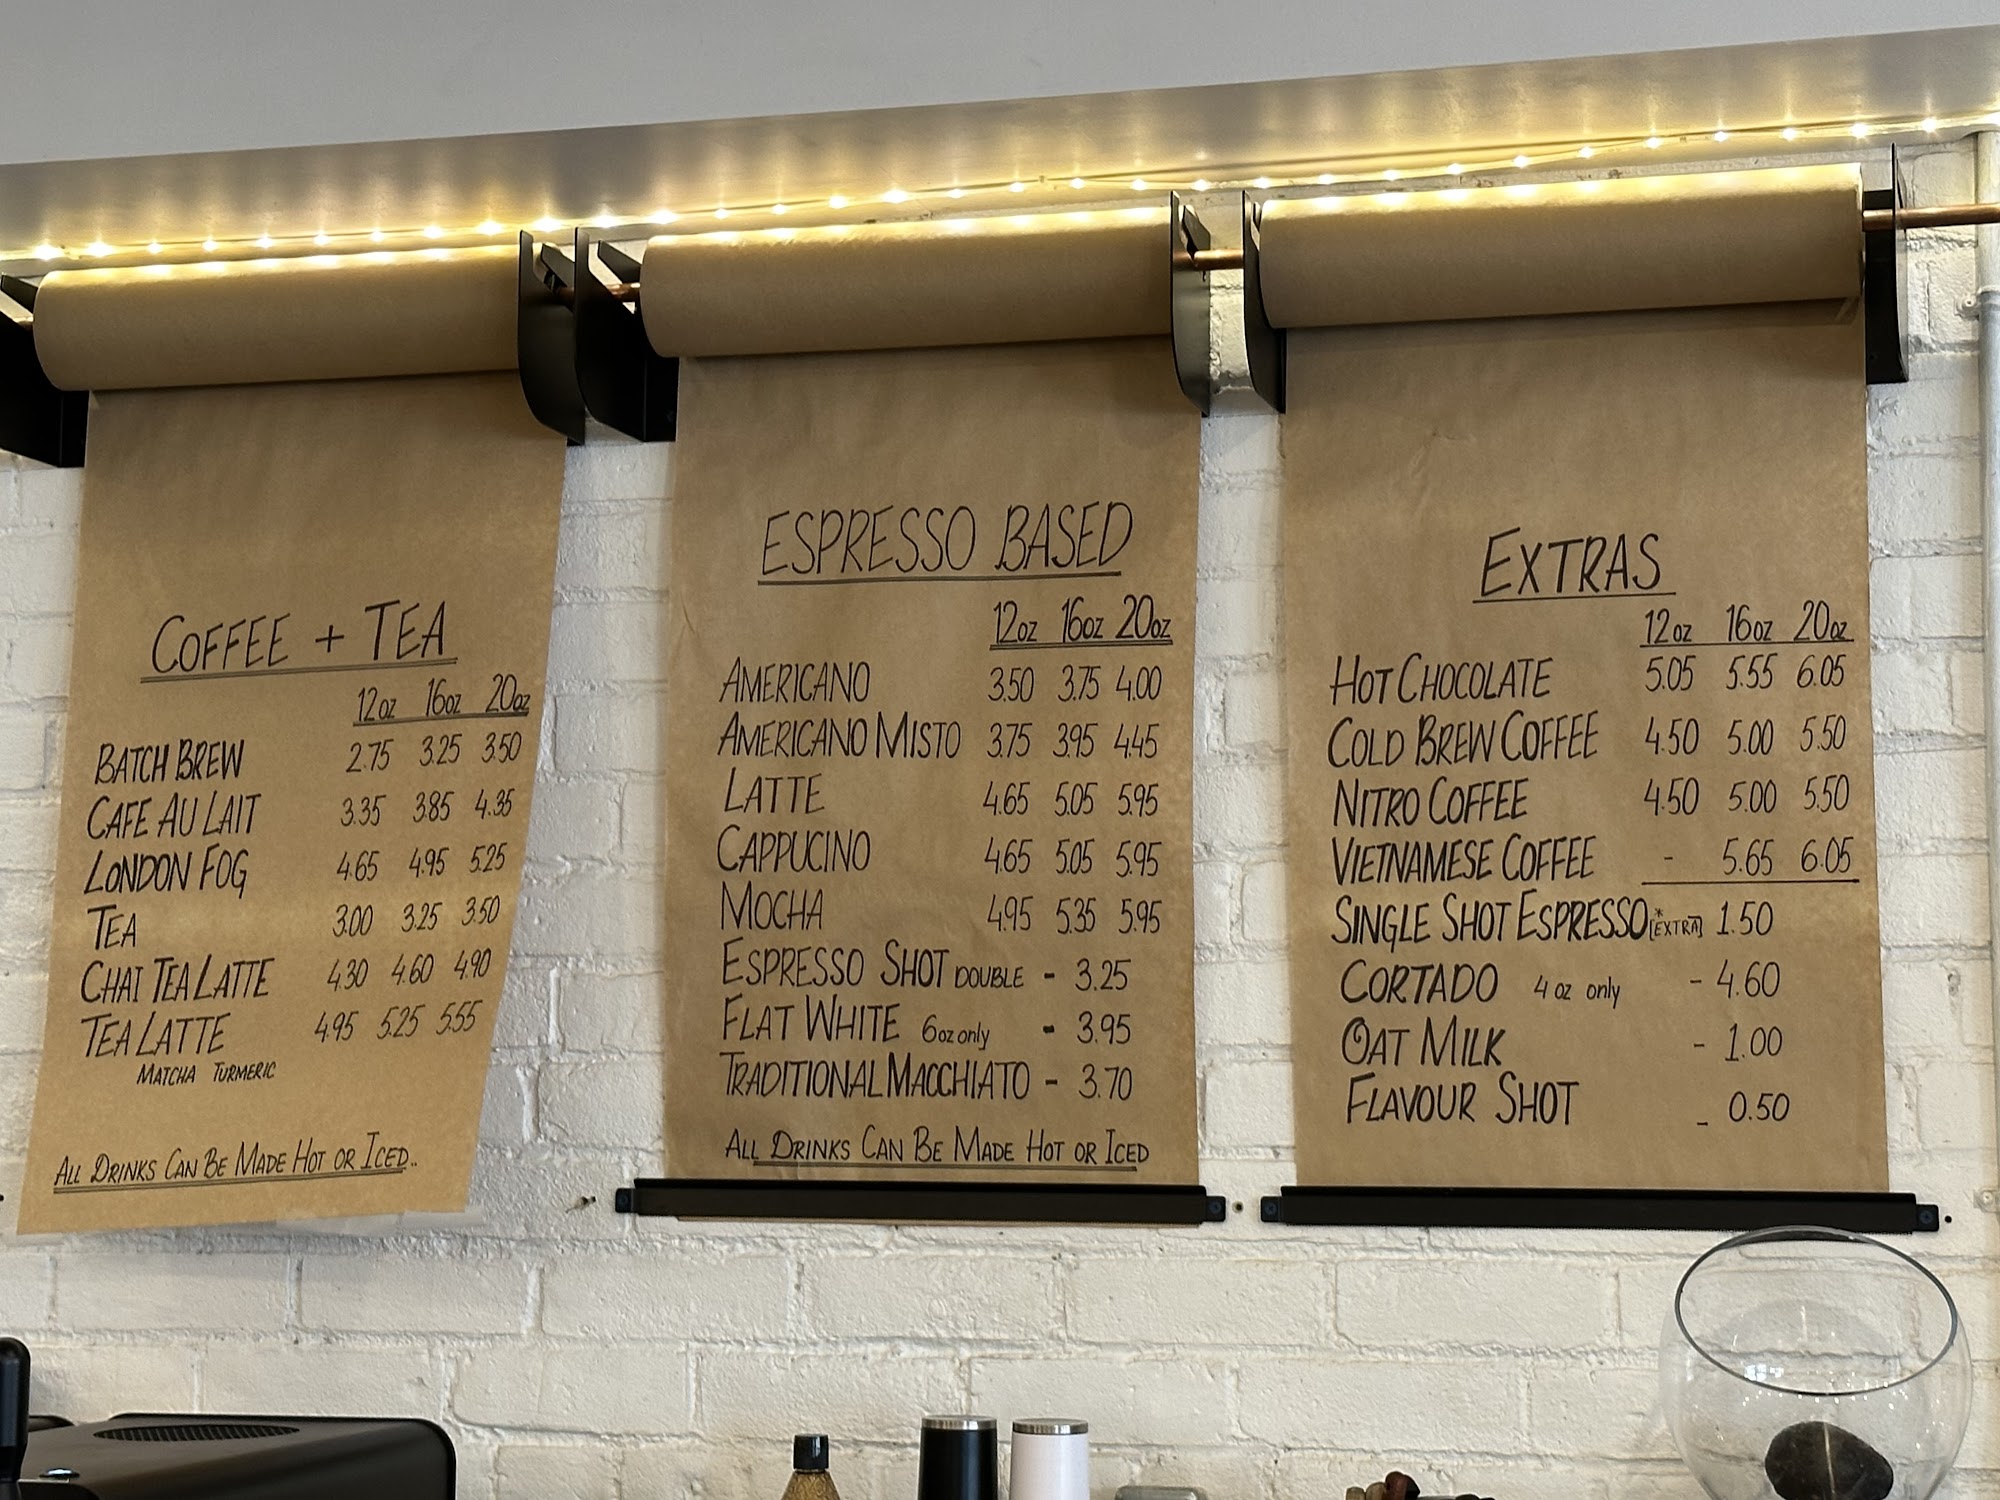 COFFEE + TEA
12oz 16oz 20oz
BATCH BREW 2.75 3.25 3.50
CAFE AU LAIT 3.35 3.85 4.35
LONDON FOG 4.65 4.95 5.25
TEA 3.00 3.25 3.50
CHAI TEA LATTE 4.30 4.60 4.90
TEA LATTE 4.95 5.25 5.55
MATCHA TURMERIC
ALL DRINKS CAN BE MADE HOT OR ICED..
ESPRESSO BASED
12oz 16oz 20oz
AMERICANO 3.50 3.75 4.00
AMERICANO MISTO 3.75 3.95 4.45
LATTE 4.65 5.05 5.95
CAPPUCINO 4.65 5.05 5.95
MOCHA 4.95 5.35 5.95
ESPRESSO SHOT DOUBLE - 3.25
FLAT WHITE 6oz only - 3.95
TRADITIONAL MACCHIATO - 3.70
ALL DRINKS CAN BE MADE HOT OR ICED
EXTRAS
12oz 16oz 20oz
HOT CHOCOLATE 5.05 5.55 6.05
COLD BREW COFFEE 4.50 5.00 5.50
NITRO COFFEE 4.50 5.00 5.50
VIETNAMESE COFFEE - 5.65 6.05
SINGLE SHOT ESPRESSO *[EXTRA] 1.50
CORTADO 4 oz only - 4.60
OAT MILK - 1.00
FLAVOUR SHOT - 0.50